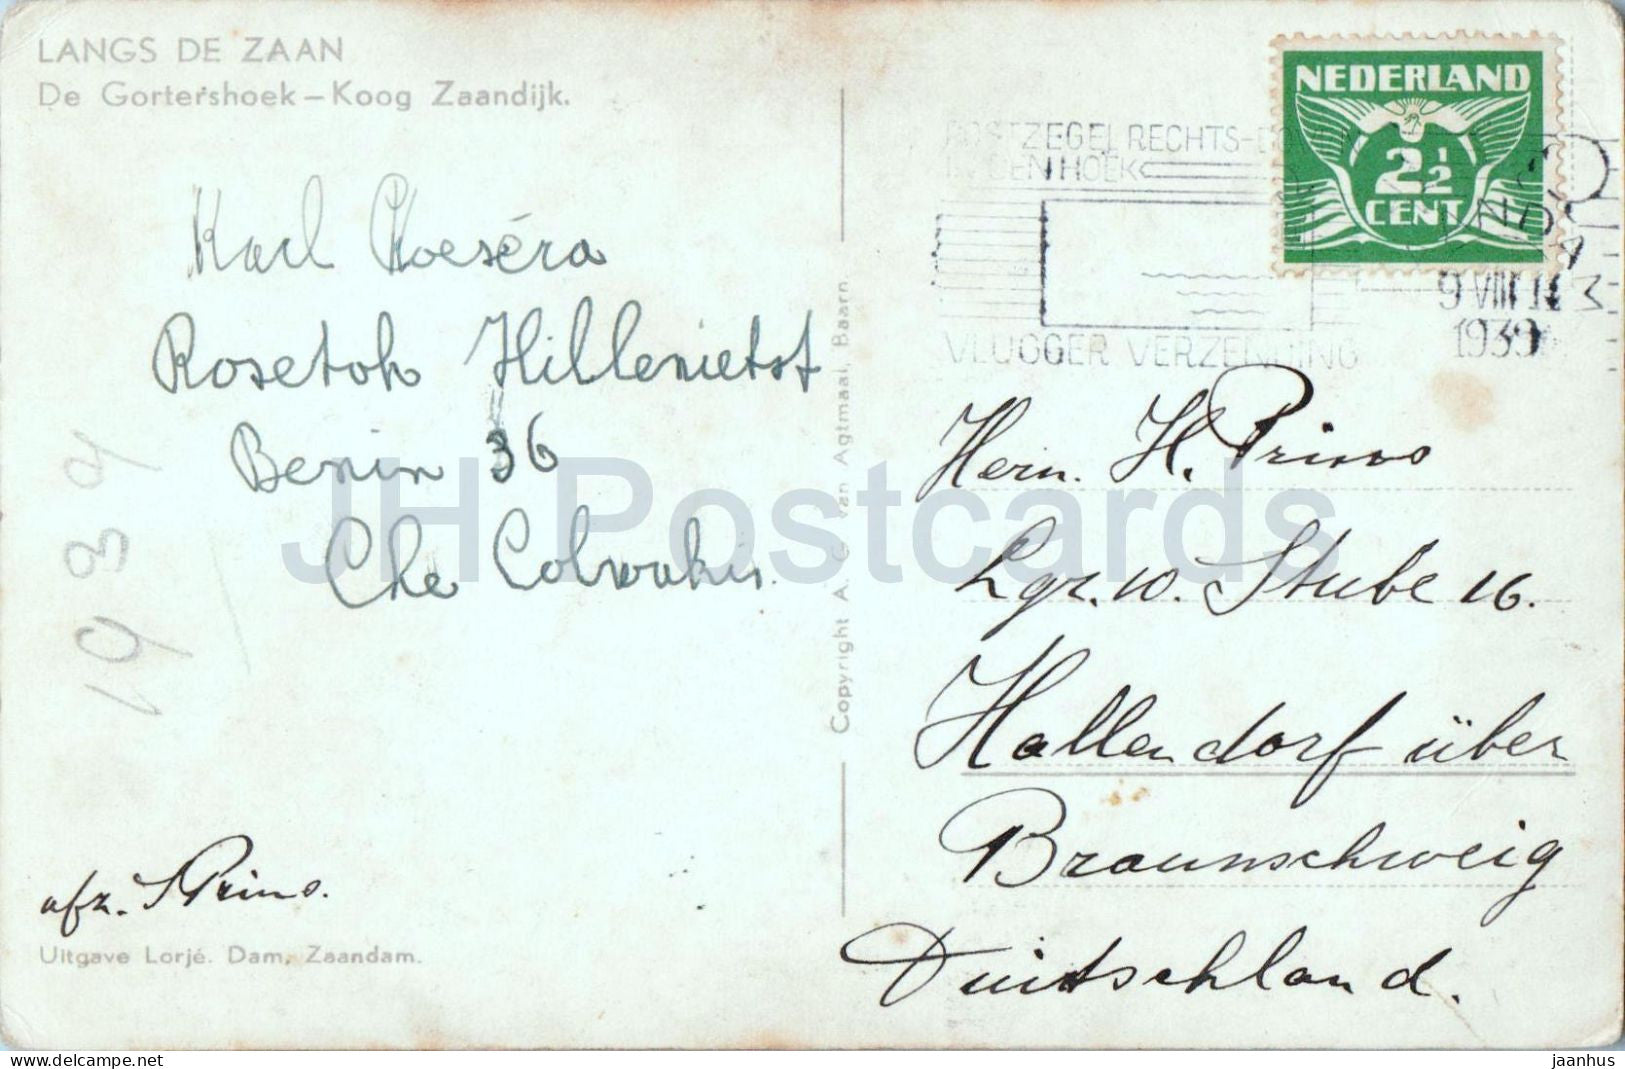 LANGS DE ZAAN
De Gortershoek – Koog Zaandijk.
Karl
Rosetoh Hillenietst
Benin 36
Che
1939
afz. S Prins.
Uitgave Lorjé. Dam, Zaandam.
Copyright A. C. van Agtmaal, Baarn
NEDERLAND
2½
CENT
POSTZEGEL RECHTS-BOVEN
IN DEN HOEK
VLUGGER VERZENDING
9 VIII
1939
Hern. H. Prins
Lgr. 10. Stube 16.
Hallendorf über
Braunschweig
Duitschland.
JH Postcards
delcampe.net
jaanhus